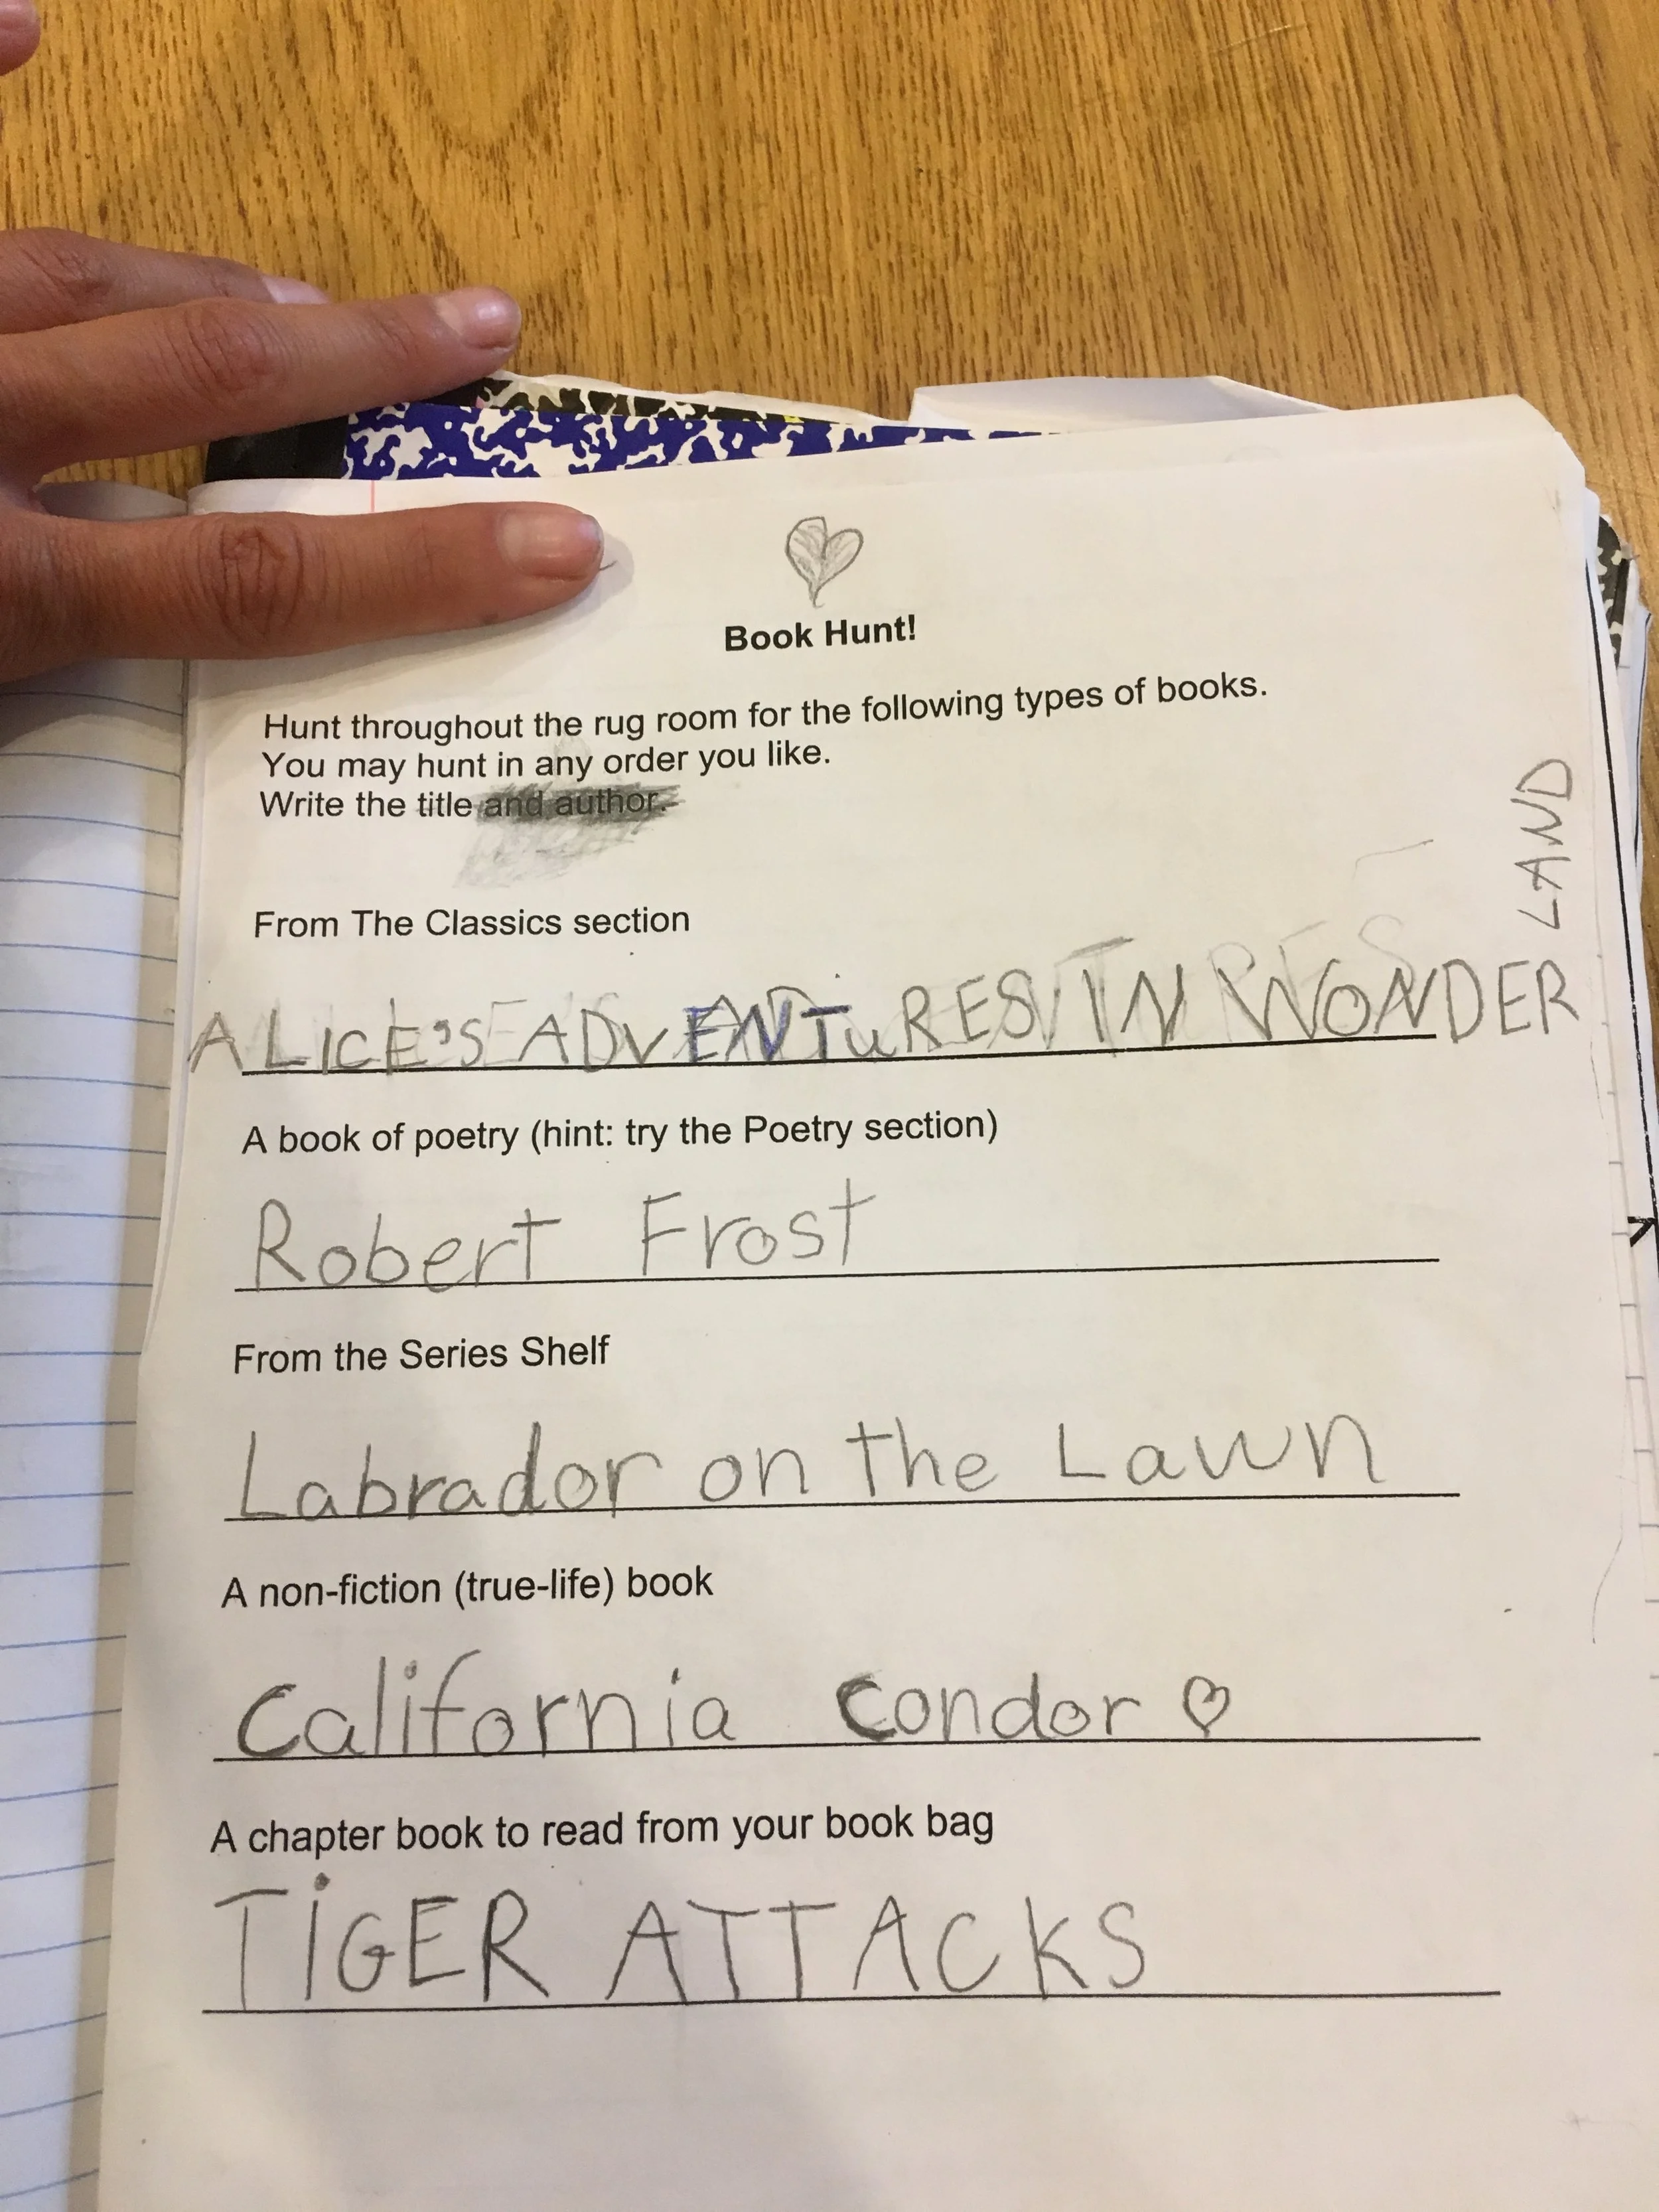 Book Hunt!
Hunt throughout the rug room for the following types of books.
You may hunt in any order you like.
Write the title and author.
From The Classics section
ALICE'S ADVENTuRES IN WONDER
LAND
A book of poetry (hint: try the Poetry section)
Robert Frost
From the Series Shelf
Labrador on the Lawn
A non-fiction (true-life) book
California Condor ♡
A chapter book to read from your book bag
TiGER ATTACKS